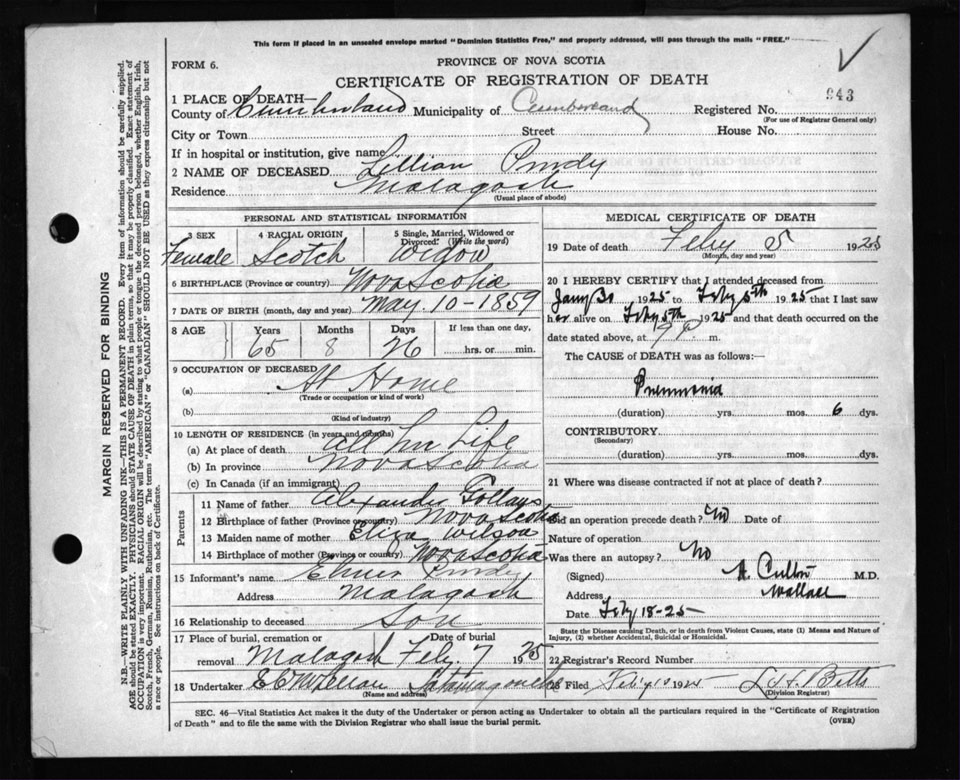 This form if placed in an unsealed envelope marked "Dominion Statistics Free," and properly addressed, will pass through the mails "FREE."
FORM 6.
PROVINCE OF NOVA SCOTIA
CERTIFICATE OF REGISTRATION OF DEATH
943
1 PLACE OF DEATH—
County of Cumberland Municipality of Cumberland Registered No.
(For use of Registrar General only)
City or Town Street House No.
If in hospital or institution, give name
2 NAME OF DECEASED Lillian Purdy
Residence Malagash
(Usual place of abode)
PERSONAL AND STATISTICAL INFORMATION
3 SEX 4 RACIAL ORIGIN 5 Single, Married, Widowed or Divorced? (Write the word)
Female Scotch Widow
6 BIRTHPLACE (Province or country) Nova Scotia
7 DATE OF BIRTH (month, day and year) May. 10-1859
8 AGE Years Months Days If less than one day,
65 8 26 hrs. or min.
9 OCCUPATION OF DECEASED
(a) At Home
(Trade or occupation or kind of work)
(b)
(Kind of industry)
10 LENGTH OF RESIDENCE (in years and months)
(a) At place of death All her Life
(b) In province Nova Scotia
(c) In Canada (if an immigrant)
Parents
11 Name of father Alexander
12 Birthplace of father (Province or country) Nova Scotia
13 Maiden name of mother Eliza Wilson
14 Birthplace of mother (Province or country) Nova Scotia
15 Informant's name Elmer Purdy
Address Malagash
16 Relationship to deceased Son
17 Place of burial, cremation or removal Date of burial
Malagash Feby. 7 1925
18 Undertaker Tatamagouche
(Name and address)
MEDICAL CERTIFICATE OF DEATH
19 Date of death Feby 5 1925
(Month, day and year)
20 I HEREBY CERTIFY that I attended deceased from
1925 to Feby 5th 1925 that I last saw
her alive on Feby 5th 1925 and that death occurred on the
date stated above, at 9 P. m.
The CAUSE of DEATH was as follows:
Pneumonia
(duration) yrs. mos. 6 dys.
CONTRIBUTORY
(Secondary)
(duration) yrs. mos. dys.
21 Where was disease contracted if not at place of death?
Did an operation precede death? No Date of
Nature of operation
Was there an autopsy? No
(Signed) M.D.
Address Wallace
Date Feby 18-25
State the Disease causing Death, or in death from Violent Causes, state (1) Means and Nature of
Injury, (2) whether Accidental, Suicidal or Homicidal.
22 Registrar's Record Number
23 Filed 192
(Division Registrar)
SEC. 46—Vital Statistics Act makes it the duty of the Undertaker or person acting as Undertaker to obtain all the particulars required in the "Certificate of Registration
of Death" and to file the same with the Division Registrar who shall issue the burial permit.
(OVER)
MARGIN RESERVED FOR BINDING
N.B.—WRITE PLAINLY WITH UNFADING INK—THIS IS A PERMANENT RECORD. Every item of information should be carefully supplied.
AGE should be stated EXACTLY. PHYSICIANS should STATE CAUSE OF DEATH in plain terms, so that it may be properly classified. Exact statement of
OCCUPATION is very important. RACIAL ORIGIN will be described by stating to what people or tongue the deceased person belonged, whether English, Irish,
Scotch, French, German, Russian, Ruthenian, etc. The terms "AMERICAN" or "CANADIAN" SHOULD NOT BE USED as they express citizenship but not
a race or people. See instructions on back of Certificate.